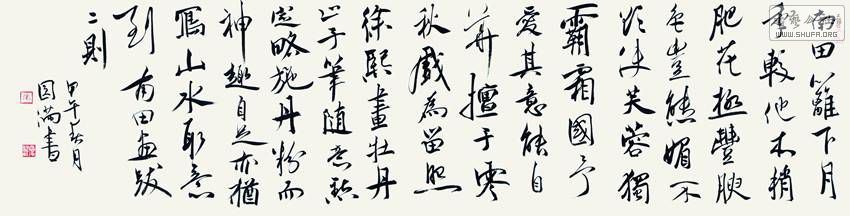 南田籬下月
季較他本稍
肥花極豐腴
色豈態媚不
欲使芙蓉獨
霸霜國予
愛其意能自
華擅于零
秋戲為留照
徐熙畫牡丹
止于筆隨意點
定略施丹粉而
神趣自足亦猶
寫山水取意
到 南田画跋
二則
甲午春月
国满書
WWW.SHUFA.ORG